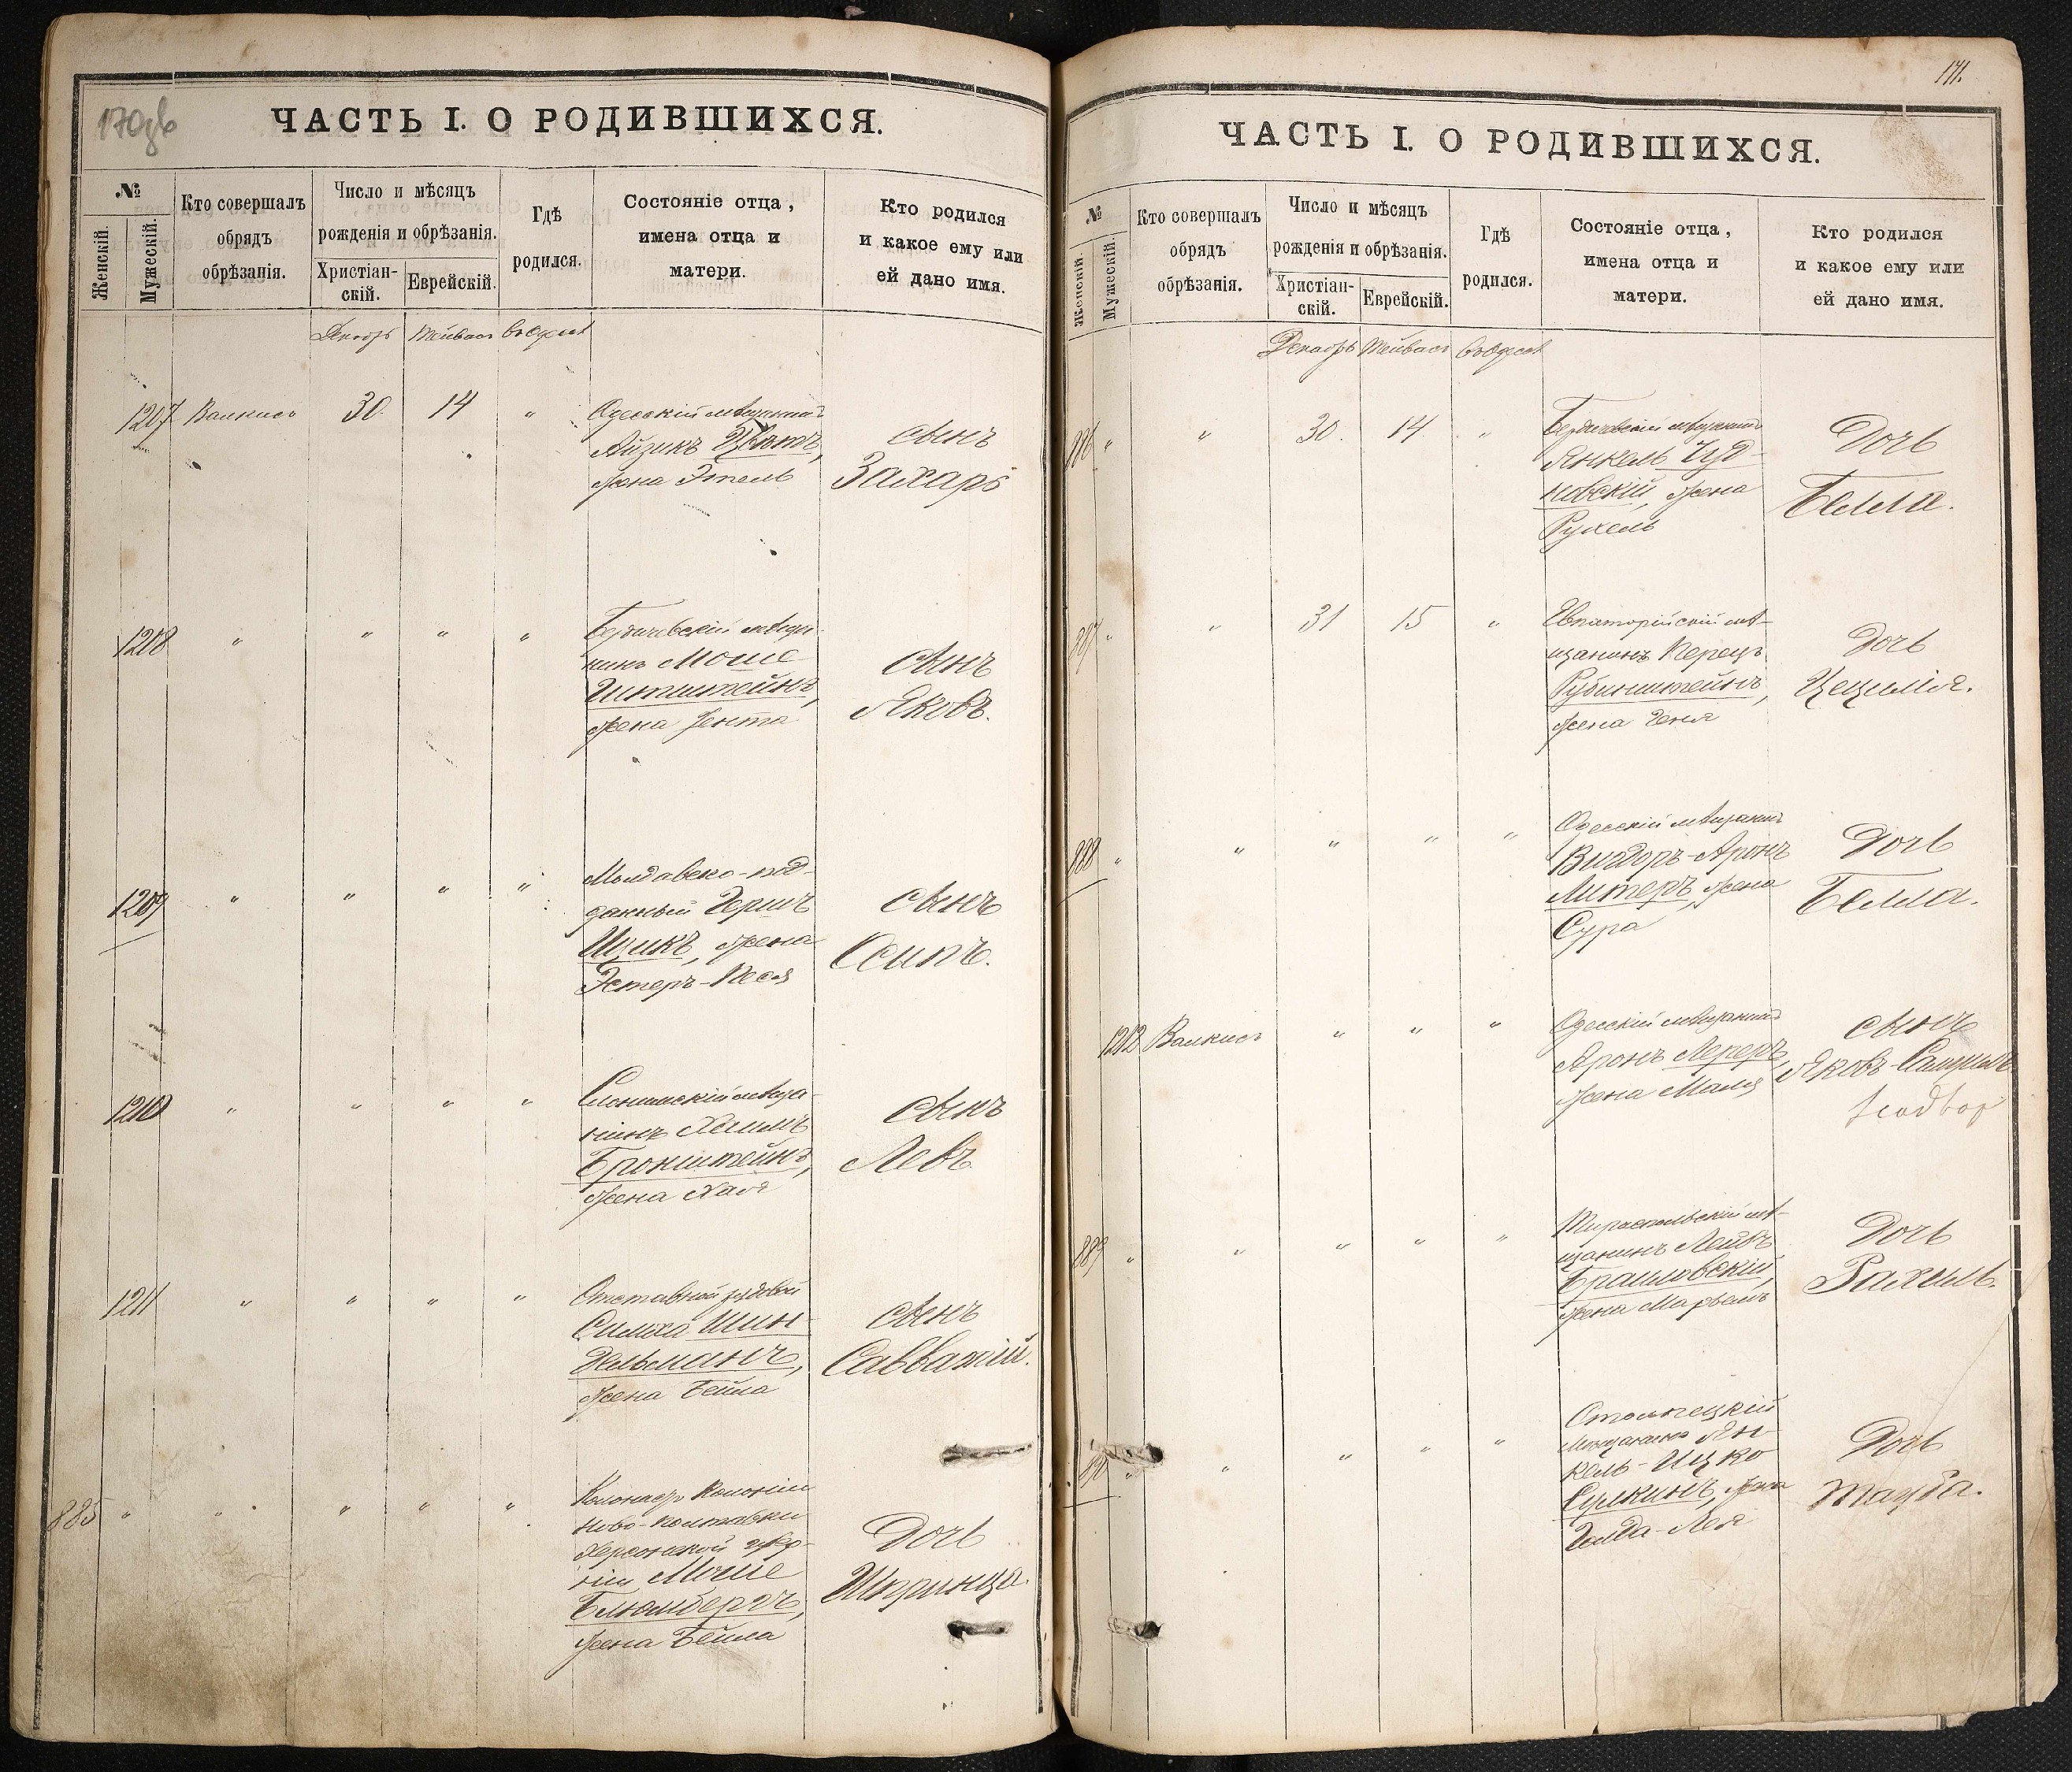 170об
ЧАСТЬ I. О РОДИВШИХСЯ.
№
Женскій.
Мужескій.
Кто совершалъ
обрядъ
обрѣзанія.
Число и мѣсяцъ
рожденія и обрѣзанія.
Христіан-
скій.
Еврейскій.
Гдѣ
родился.
Состояніе отца,
имена отца и
матери.
Кто родился
и какое ему или
ей дано имя.
Декабрь Тейвасъ въ Одессѣ
1207 30. 14 "
Одесскій мѣщанинъ
Айзикъ Цватъ,
жена Этель
сынъ
Захарь
1208 " " " "
Бердичевскій мѣща-
нинъ Моше
жена Іента
сынъ
Яковъ.
1209 " " " "
Молдавско-под-
данный Гершъ
Ицикъ, жена
Эстеръ-Песя
сынъ
Осипъ.
1210 " " " "
Слонимскій мѣща-
нинъ Хаимъ
Бронштейнъ,
жена Хая
сынъ
Левъ
1211 " " " "
Отставной рядовой
Симха Шин-
дельманъ,
жена Бейла
сынъ
Савватій.
885 " " " " "
Колонистъ колоніи
Ново-Полтавки
Херсонской губер-
ніи Моше
Блюмбергъ,
жена Бейла
дочь
Шпринца.
171.
ЧАСТЬ I. О РОДИВШИХСЯ.
№
Женскій.
Мужескій.
Кто совершалъ
обрядъ
обрѣзанія.
Число и мѣсяцъ
рожденія и обрѣзанія.
Христіан-
скій.
Еврейскій.
Гдѣ
родился.
Состояніе отца,
имена отца и
матери.
Кто родился
и какое ему или
ей дано имя.
Декабрь Тейвасъ въ Одессѣ
886 " " 30. 14 "
Бердичевскій мѣщанинъ
Янкель Чуд-
новскій, жена
Рухель
Дочь
Белла.
887 " " 31 15 "
Евпаторійскій мѣ-
щанинъ Перецъ
Рубинштейнъ,
жена Геня
Дочь
Цецилія.
888 " " " " "
Одесскій мѣщанинъ
Вигдоръ-Аронъ
Литеръ, жена
Сура
Дочь
Белла.
1212 " " "
Одесскій мѣщанинъ
Аронъ Лереръ,
жена Маля
сынъ
Яковъ-Самуилъ
889 " " " " "
Тираспольскій мѣ-
щанинъ Лейбъ
Браиловскій,
жена Марьемъ
Дочь
Рахиль.
890 " " " " "
Столпецкій
мѣщанинъ Ян-
кель-Ицко
Сулкинъ, жена
Голда-Лея
Дочь
Тауба.